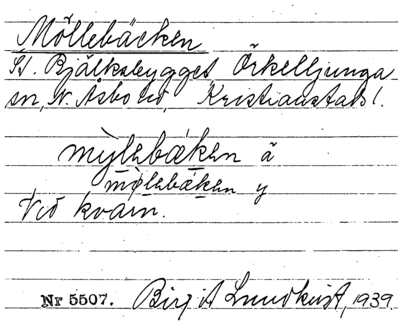 Möllebäcken
St. Bjälkabygget, Örkelljunga
sn, N. Åsbo hd, Kristianstads l.
mỳlebæ̀ken ä
mø̀lebæ̀ken y
Vid kvarn.
Nr 5507. Birgit Lundkvist, 1939.